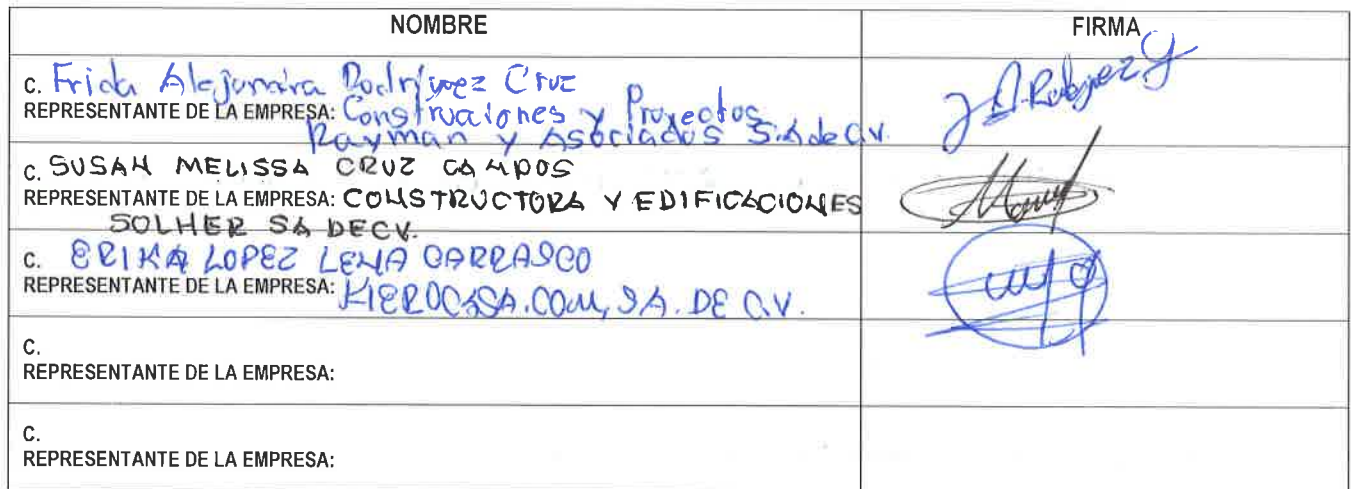 NOMBRE FIRMA
C. Frida Alejandra Rodríguez Cruz
REPRESENTANTE DE LA EMPRESA: Construciones y Proyectos
Rayman y Asociados S.A de C.V.
C. SUSAN MELISSA CRUZ CAMPOS
REPRESENTANTE DE LA EMPRESA: CONSTRUCTORA Y EDIFICACIONES
SOLHER SA DE CV.
C. ERIKA LOPEZ LENA CARRASCO
REPRESENTANTE DE LA EMPRESA: KIEROCASA.COM, S.A. DE C.V.
C.
REPRESENTANTE DE LA EMPRESA:
C.
REPRESENTANTE DE LA EMPRESA: